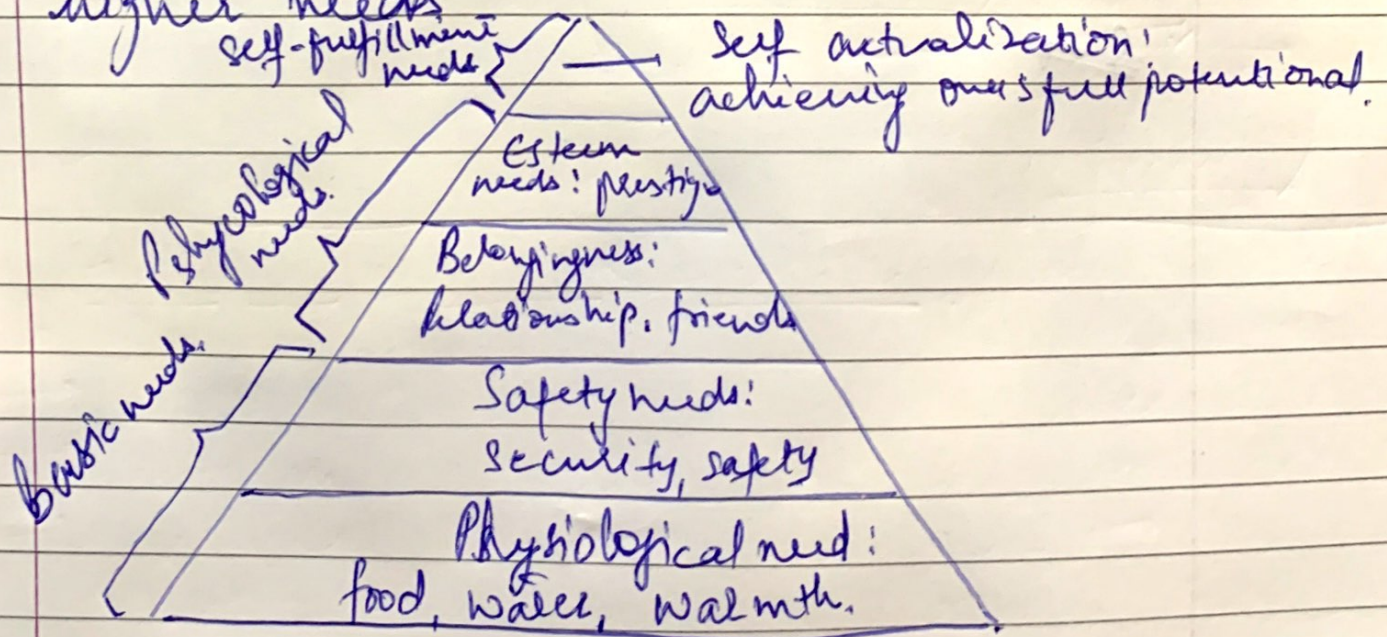 higher needs
self-fulfillment
needs
Self actualization:
achieving one's full potentional.
Pshycological
needs.
Esteem
needs: prestige
Belongingness:
Relationship, friends
Basic needs.
Safety needs:
Security, safety
Physiological need:
food, water, warmth.